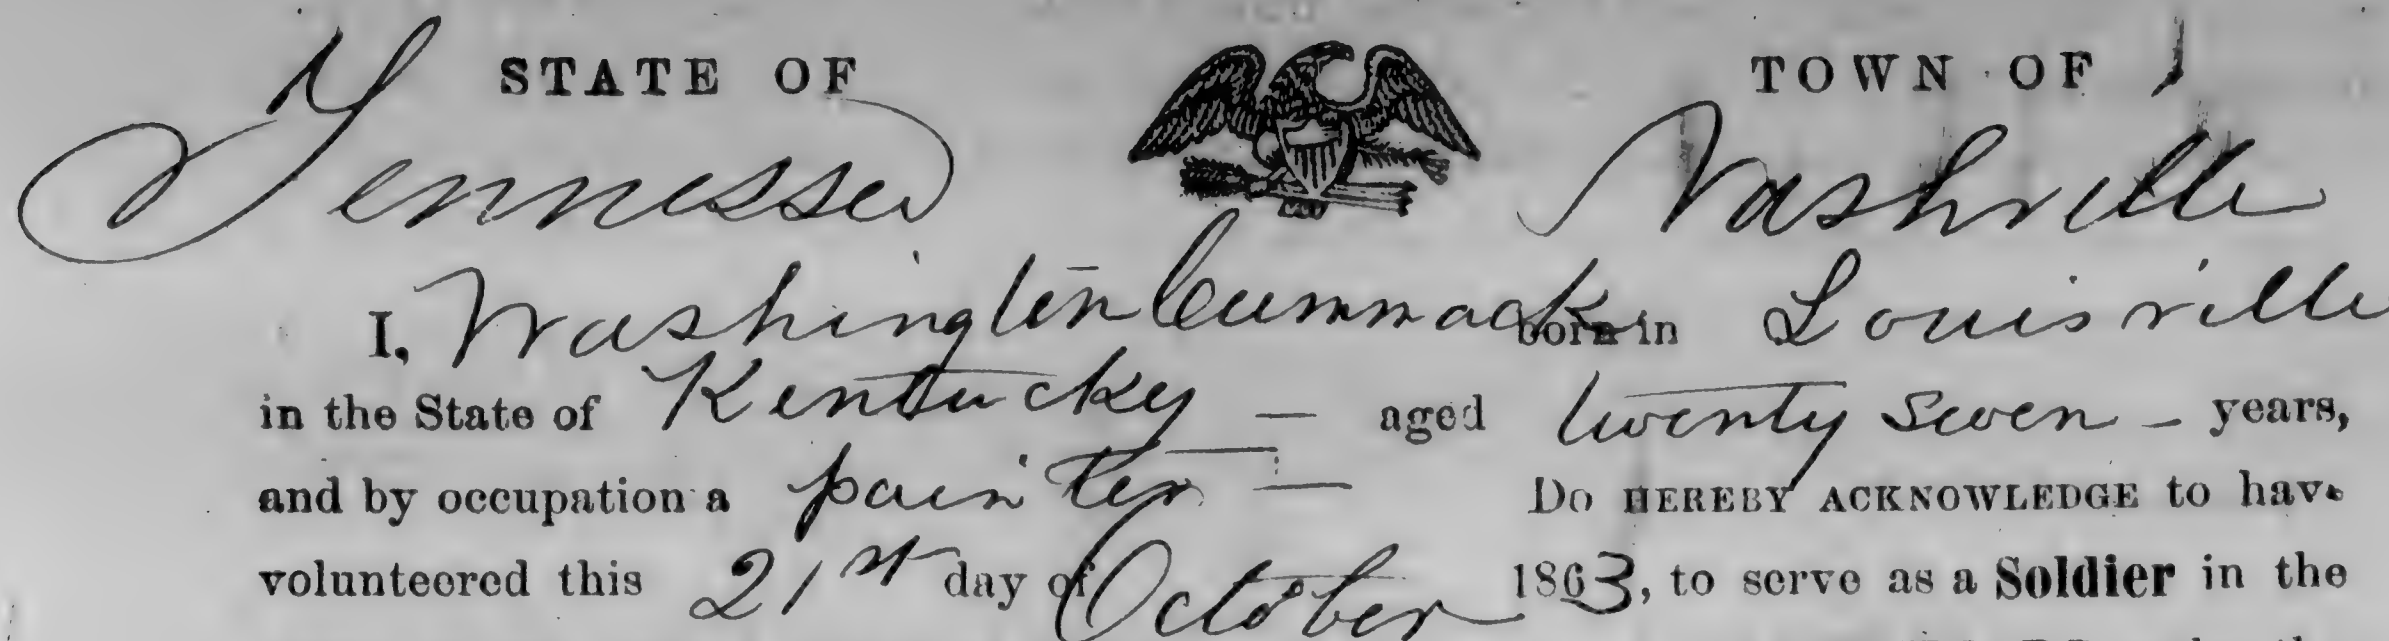 STATE OF TOWN OF
Tennessee Nashville
I, Washington Cummack born in Louisville
in the State of Kentucky — aged twenty seven — years,
and by occupation a painter — Do HEREBY ACKNOWLEDGE to have
volunteered this 21st day of October 1863, to serve as a Soldier in the